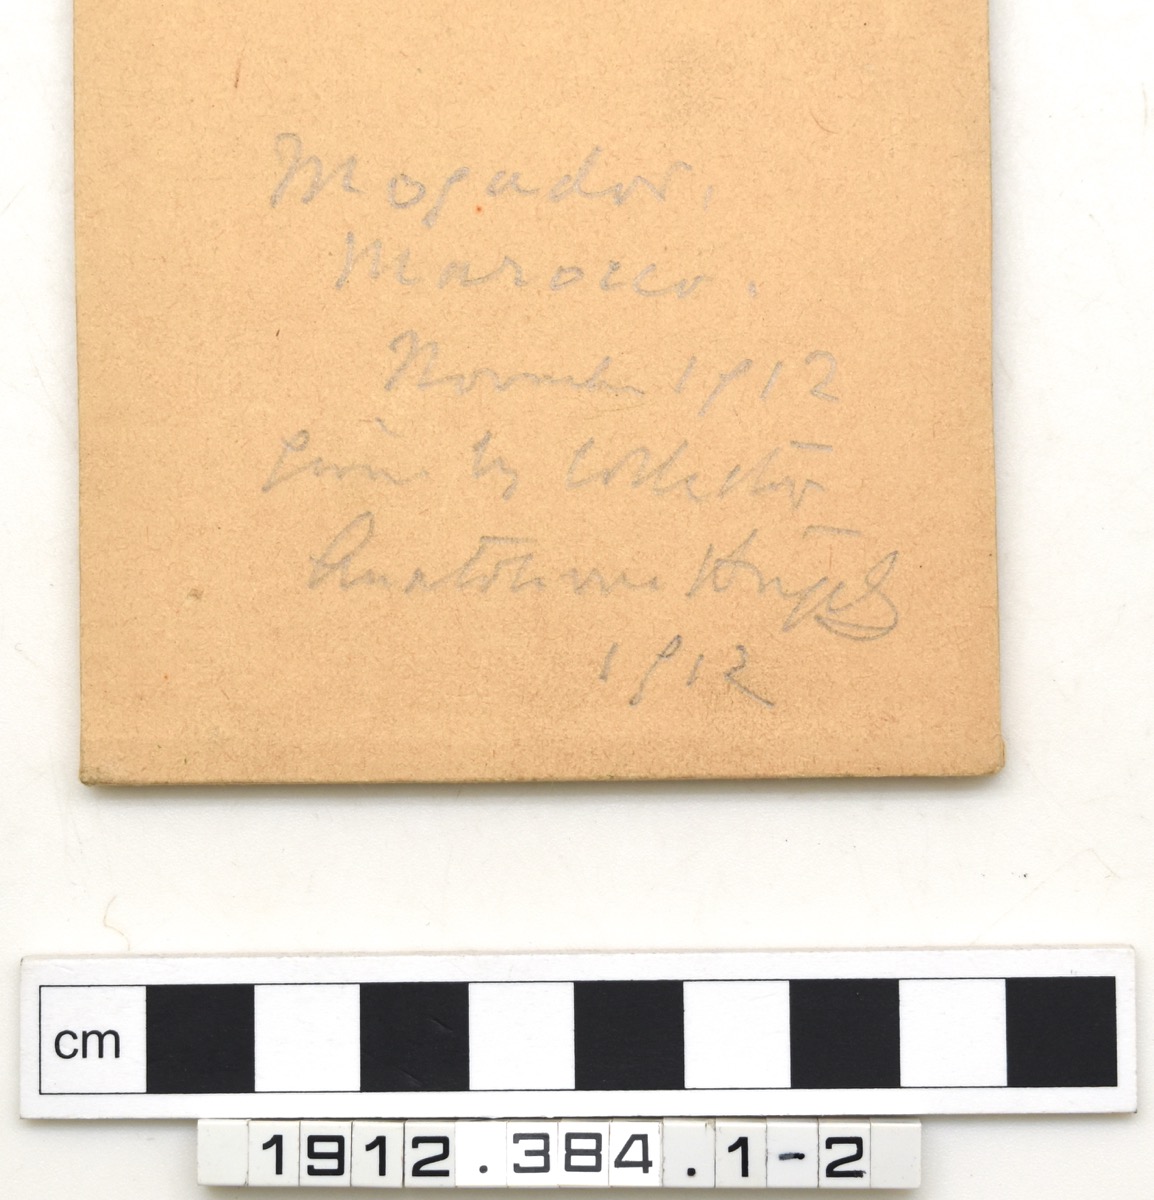 Mogador.
Marocco.
November 1912
Given by Collector
Anatole von Hügel
1912
cm
1912.384.1-2